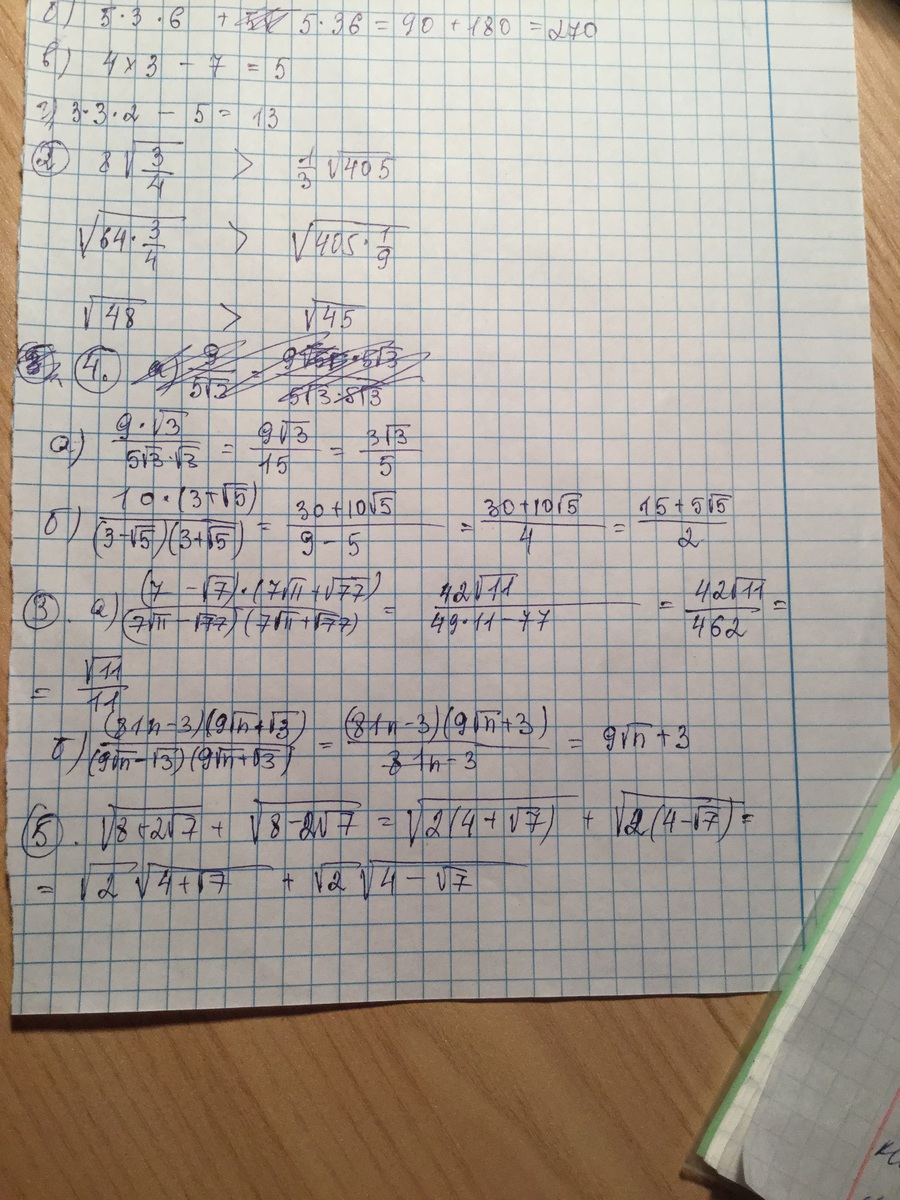 б) 5·3·6 + 5·36 = 90 + 180 = 270
в) 4 × 3 - 7 = 5
г) 3·3·2 - 5 = 13
② 8√(3/4) > 1/3 √405
√(64·3/4) > √(405·1/9)
√48 > √45
④.
а) (9·√3)/(5√3·√3) = 9√3/15 = 3√3/5
б) (10·(3+√5))/((3-√5)(3+√5)) = (30+10√5)/(9-5) = (30+10√5)/4 = (15+5√5)/2
③. а) ((7-√7)·(7√11+√77))/((7√11-√77)(7√11+√77)) = 42√11/(49·11-77) = 42√11/462 =
= √11/11
б) ((81n-3)(9√n+√3))/((9√n-√3)(9√n+√3)) = ((81n-3)(9√n+3))/(81n-3) = 9√n+3
⑤. √(8+2√7) + √(8-2√7) = √(2(4+√7)) + √(2(4-√7)) =
= √2 √(4+√7) + √2 √(4-√7)